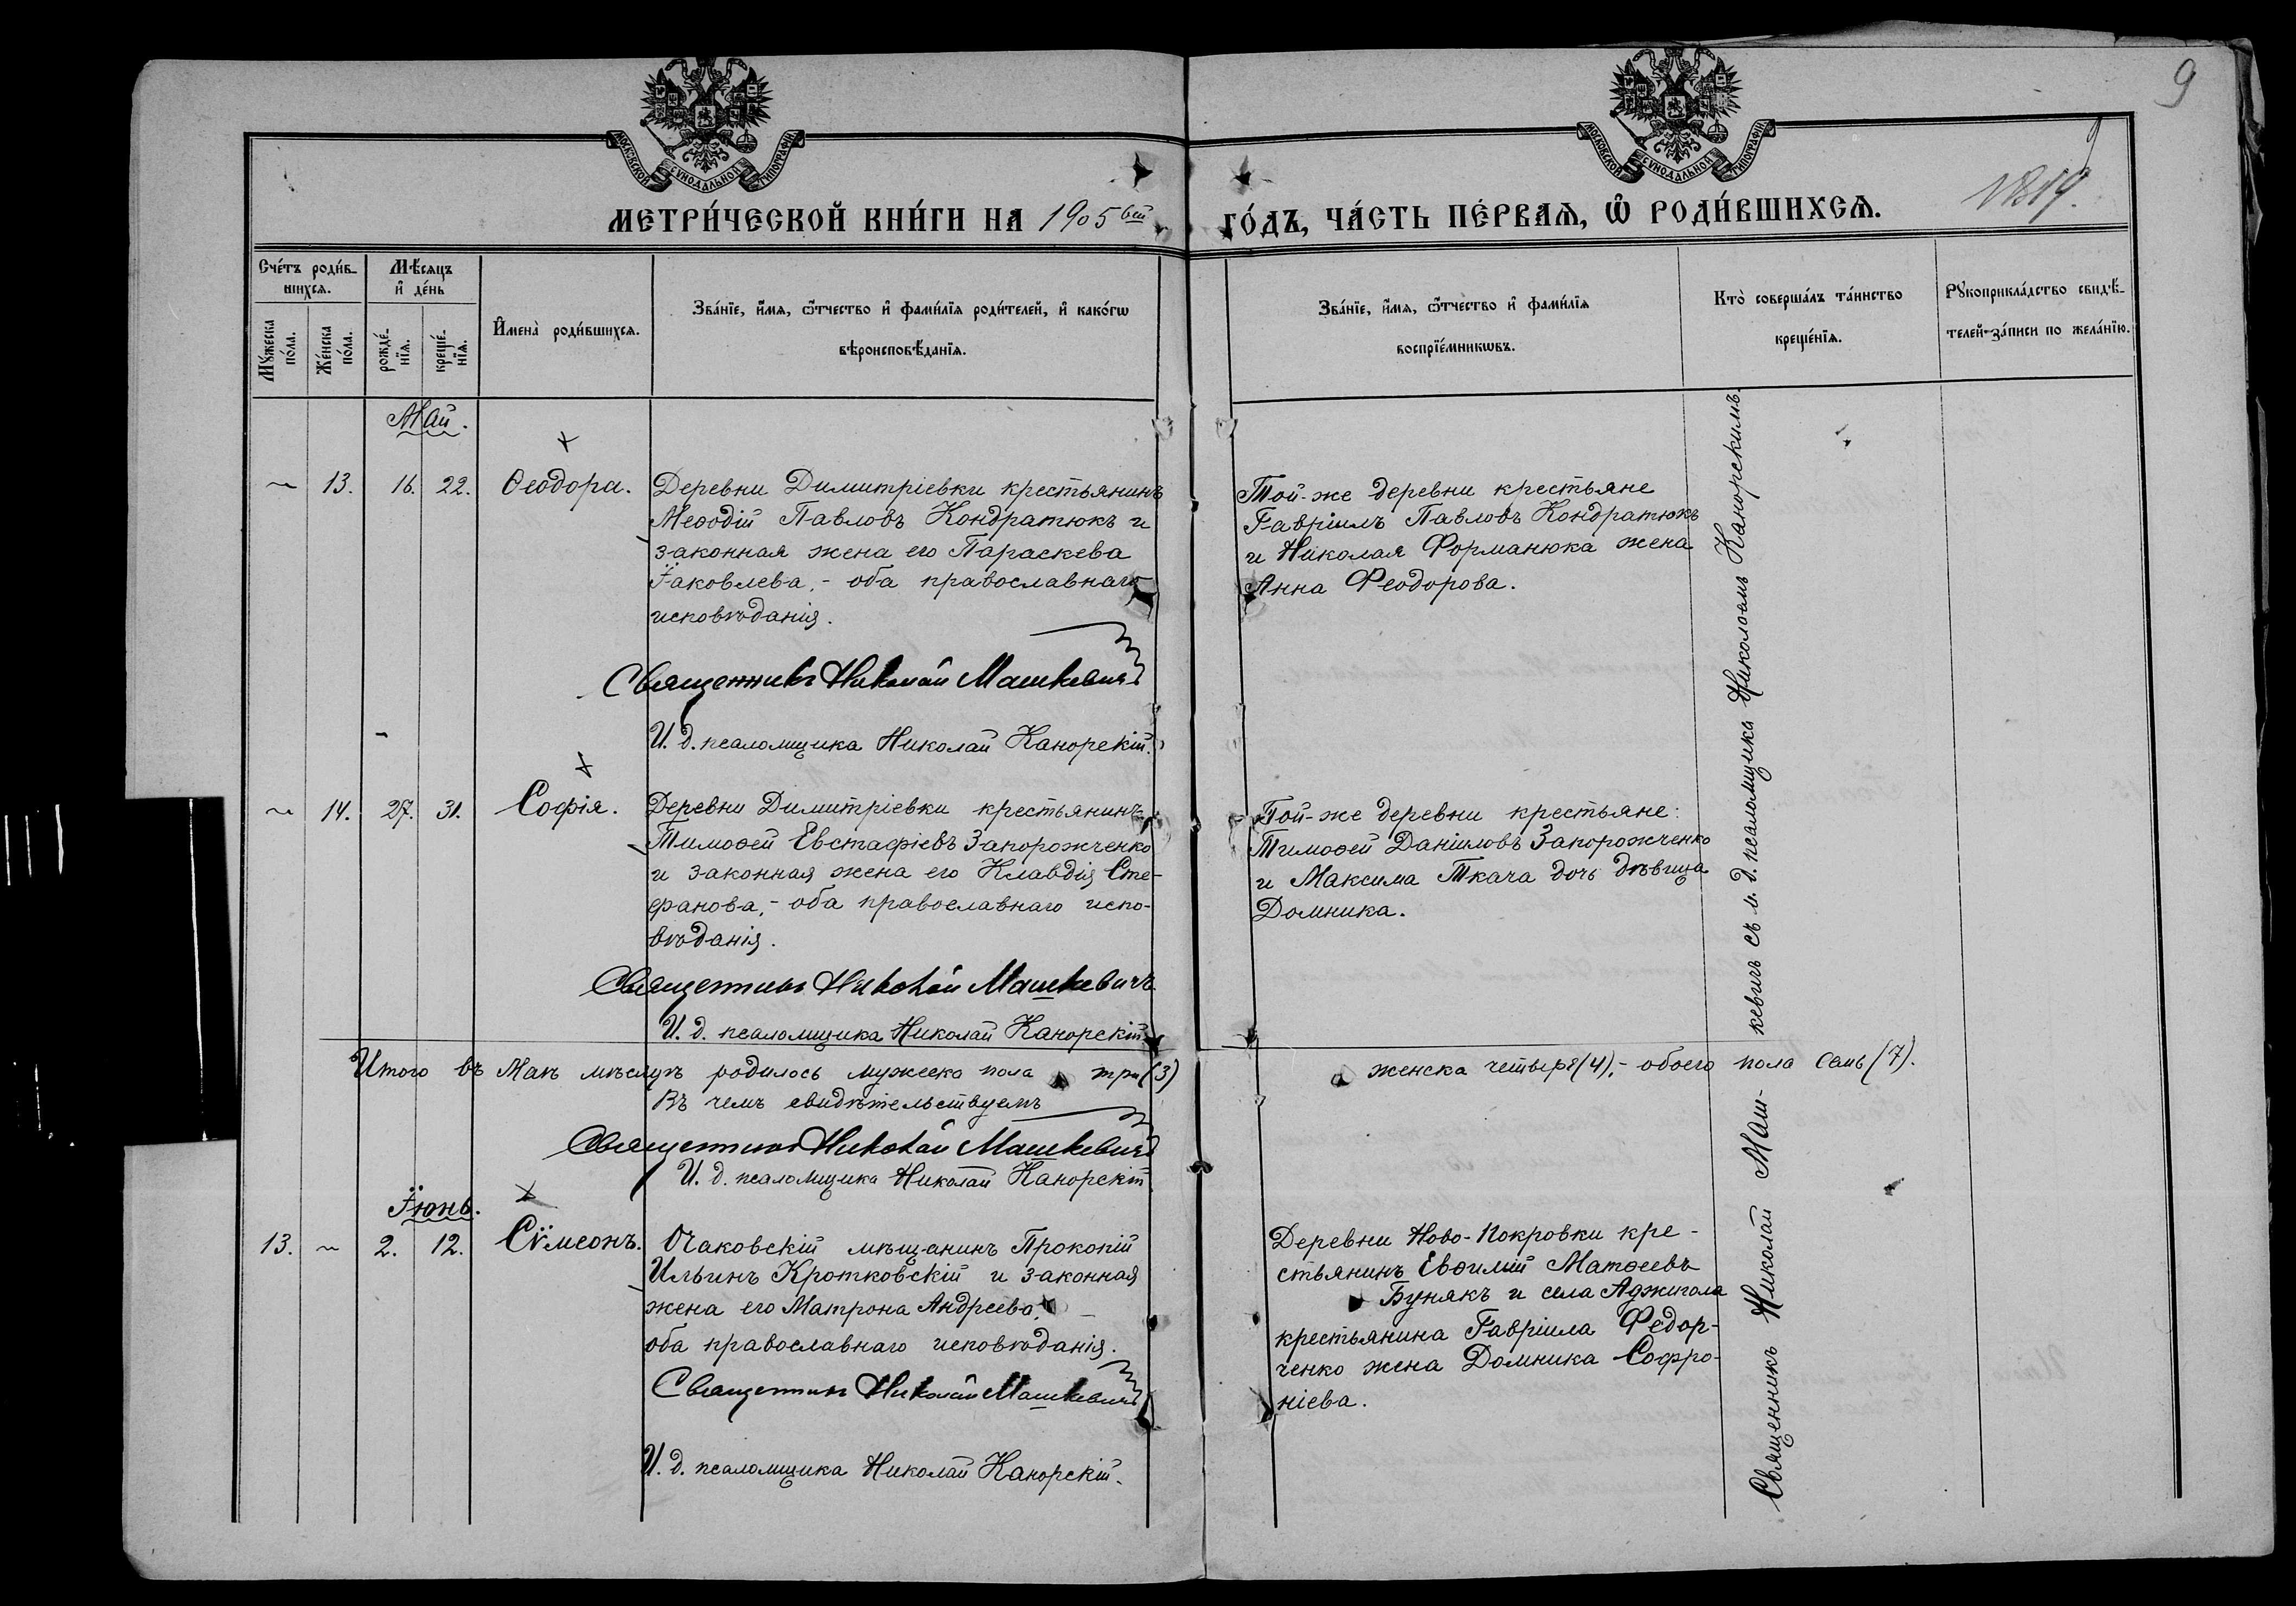 9
МОСКОВСКОЙ СѴНОДАЛЬНОЙ ТИПОГРАФІИ
МОСКОВСКОЙ СѴНОДАЛЬНОЙ ТИПОГРАФІИ
МЕТРИ́ЧЕСКОЙ КНИ́ГИ НА 1905 вый
ГО́ДЪ, ЧА́СТЬ ПЕ́РВАѦ, Ѡ҆ РОДИ́ВШИХСѦ.
Сче́тъ роди́в-
шихсѧ.
Мꙋ́жеска по́ла.
Же́нска по́ла.
Мѣ́сѧцъ
и҆ де́нь
рожде́-
нїѧ.
креще́-
нїѧ.
И҆мена̀ роди́вшихсѧ.
Зва́нїе, и҆́мѧ, ѻ҆́тчество и҆ фами́лїѧ роди́телей, и҆ како́гѡ
вѣроисповѣ́данїѧ.
Зва́нїе, и҆́мѧ, ѻ҆́тчество и҆ фами́лїѧ
воспрїе́мникѡвъ.
Кто̀ соверша́лъ та́инство
креще́нїѧ.
Рꙋкоприкла́дство свидѣ́-
телей за́писи по жела́нїю.
Май.
13. 16. 22. Ѳеодора.
Деревни Димитріевки крестьянинъ
Меѳодій Павловъ Кондратюкъ и
законная жена его Параскева
Їаковлева, - оба православнаго
исповѣданія.
Священникъ Николай Машкевичъ
И. д. псаломщика Николай Канорскій.
Той-же деревни крестьяне
Гавріилъ Павловъ Кондратюкъ
и Николая Форманюка жена
Анна Феодорова.
14. 27. 31. Софія.
Деревни Димитріевки крестьянинъ
Тимоѳей Евстафіевъ Запорожченко
и законная жена его Клавдія Сте-
фанова, - оба православнаго испо-
вѣданія.
Священникъ Николай Машкевичъ
И. д. псаломщика Николай Канорскій
Той-же деревни крестьяне:
Тимоѳей Даніиловъ Запорожченко
и Максима Ткача дочь дѣвица
Домника.
Итого въ Маѣ мѣсяцѣ родилось мужеска пола три (3) женска четыре (4), - обоего пола семь (7).
Въ чемъ свидѣтельствуемъ
Священникъ Николай Машкевичъ
И. д. псаломщика Николай Канорскій
Їюнь.
13. 2. 12. Сѷмеонъ.
Очаковскій мѣщанинъ Прокопій
Ильинъ Кротковскій и законная
жена его Матрона Андреева, -
оба православнаго исповѣданія.
Священникъ Николай Машкевичъ
И. д. псаломщика Николай Канорскій.
Деревни Ново-Покровки кре-
стьянинъ Евѳимій Матѳеевъ
Бунякъ и села Аджигола
крестьянина Гавріила Федор-
ченко жена Домника Софро-
ніева.
Священникъ Николай Маш-кевичъ съ и. д. псаломщика Николаемъ Канорскимъ